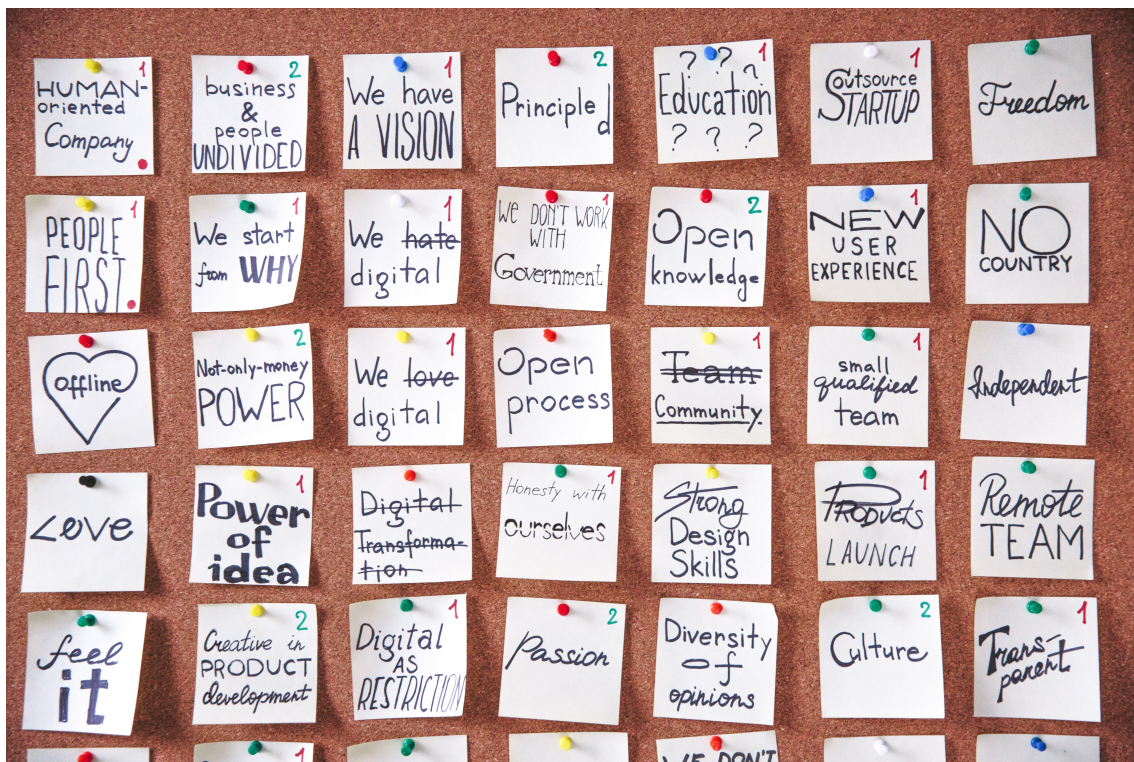 HUMAN-
oriented
Company
1
business
&
people
UNDIVIDED
2
We have
A VISION
1
Principled
2
? ? ?
Education
? ? ?
1
Outsource
STARTUP
1
Freedom
PEOPLE
FIRST.
1
We start
from WHY
1
We hate
digital
1
WE DON'T WORK
WITH
Government
1
Open
knowledge
2
NEW
USER
EXPERIENCE
1
NO
COUNTRY
offline
Not-only-money
POWER
2
We love
digital
1
Open
process
Team
Community
1
small
qualified
team
1
Independent
Love
Power
of
idea
1
Digital
Transforma-
tion
Honesty with
ourselves
1
Strong
Design
Skills
Products
LAUNCH
1
Remote
TEAM
feel
it
Creative in
PRODUCT
development
2
Digital
AS
RESTRICTION
1
Passion
2
Diversity
of
opinions
Culture
2
Trans-
parent
1
1
WE DON'T